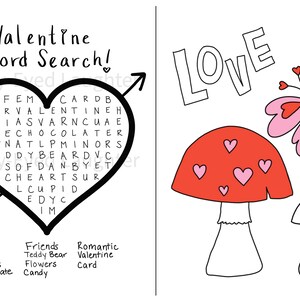 Valentine
ord Search!
LOVE
F E M Y C A R D B
R V A L E N T I N E H
I A S V A R N C U A E
E C H O C O L A T E R
N A T L P M I N O R S
D D Y B E A R D V C
S O F D A N B Y E T
C H E A R T S U R
L C U P I D
E D Y C
I M
Friends
Teddy Bear
Flowers
Candy
Romantic
Valentine
Card
ate